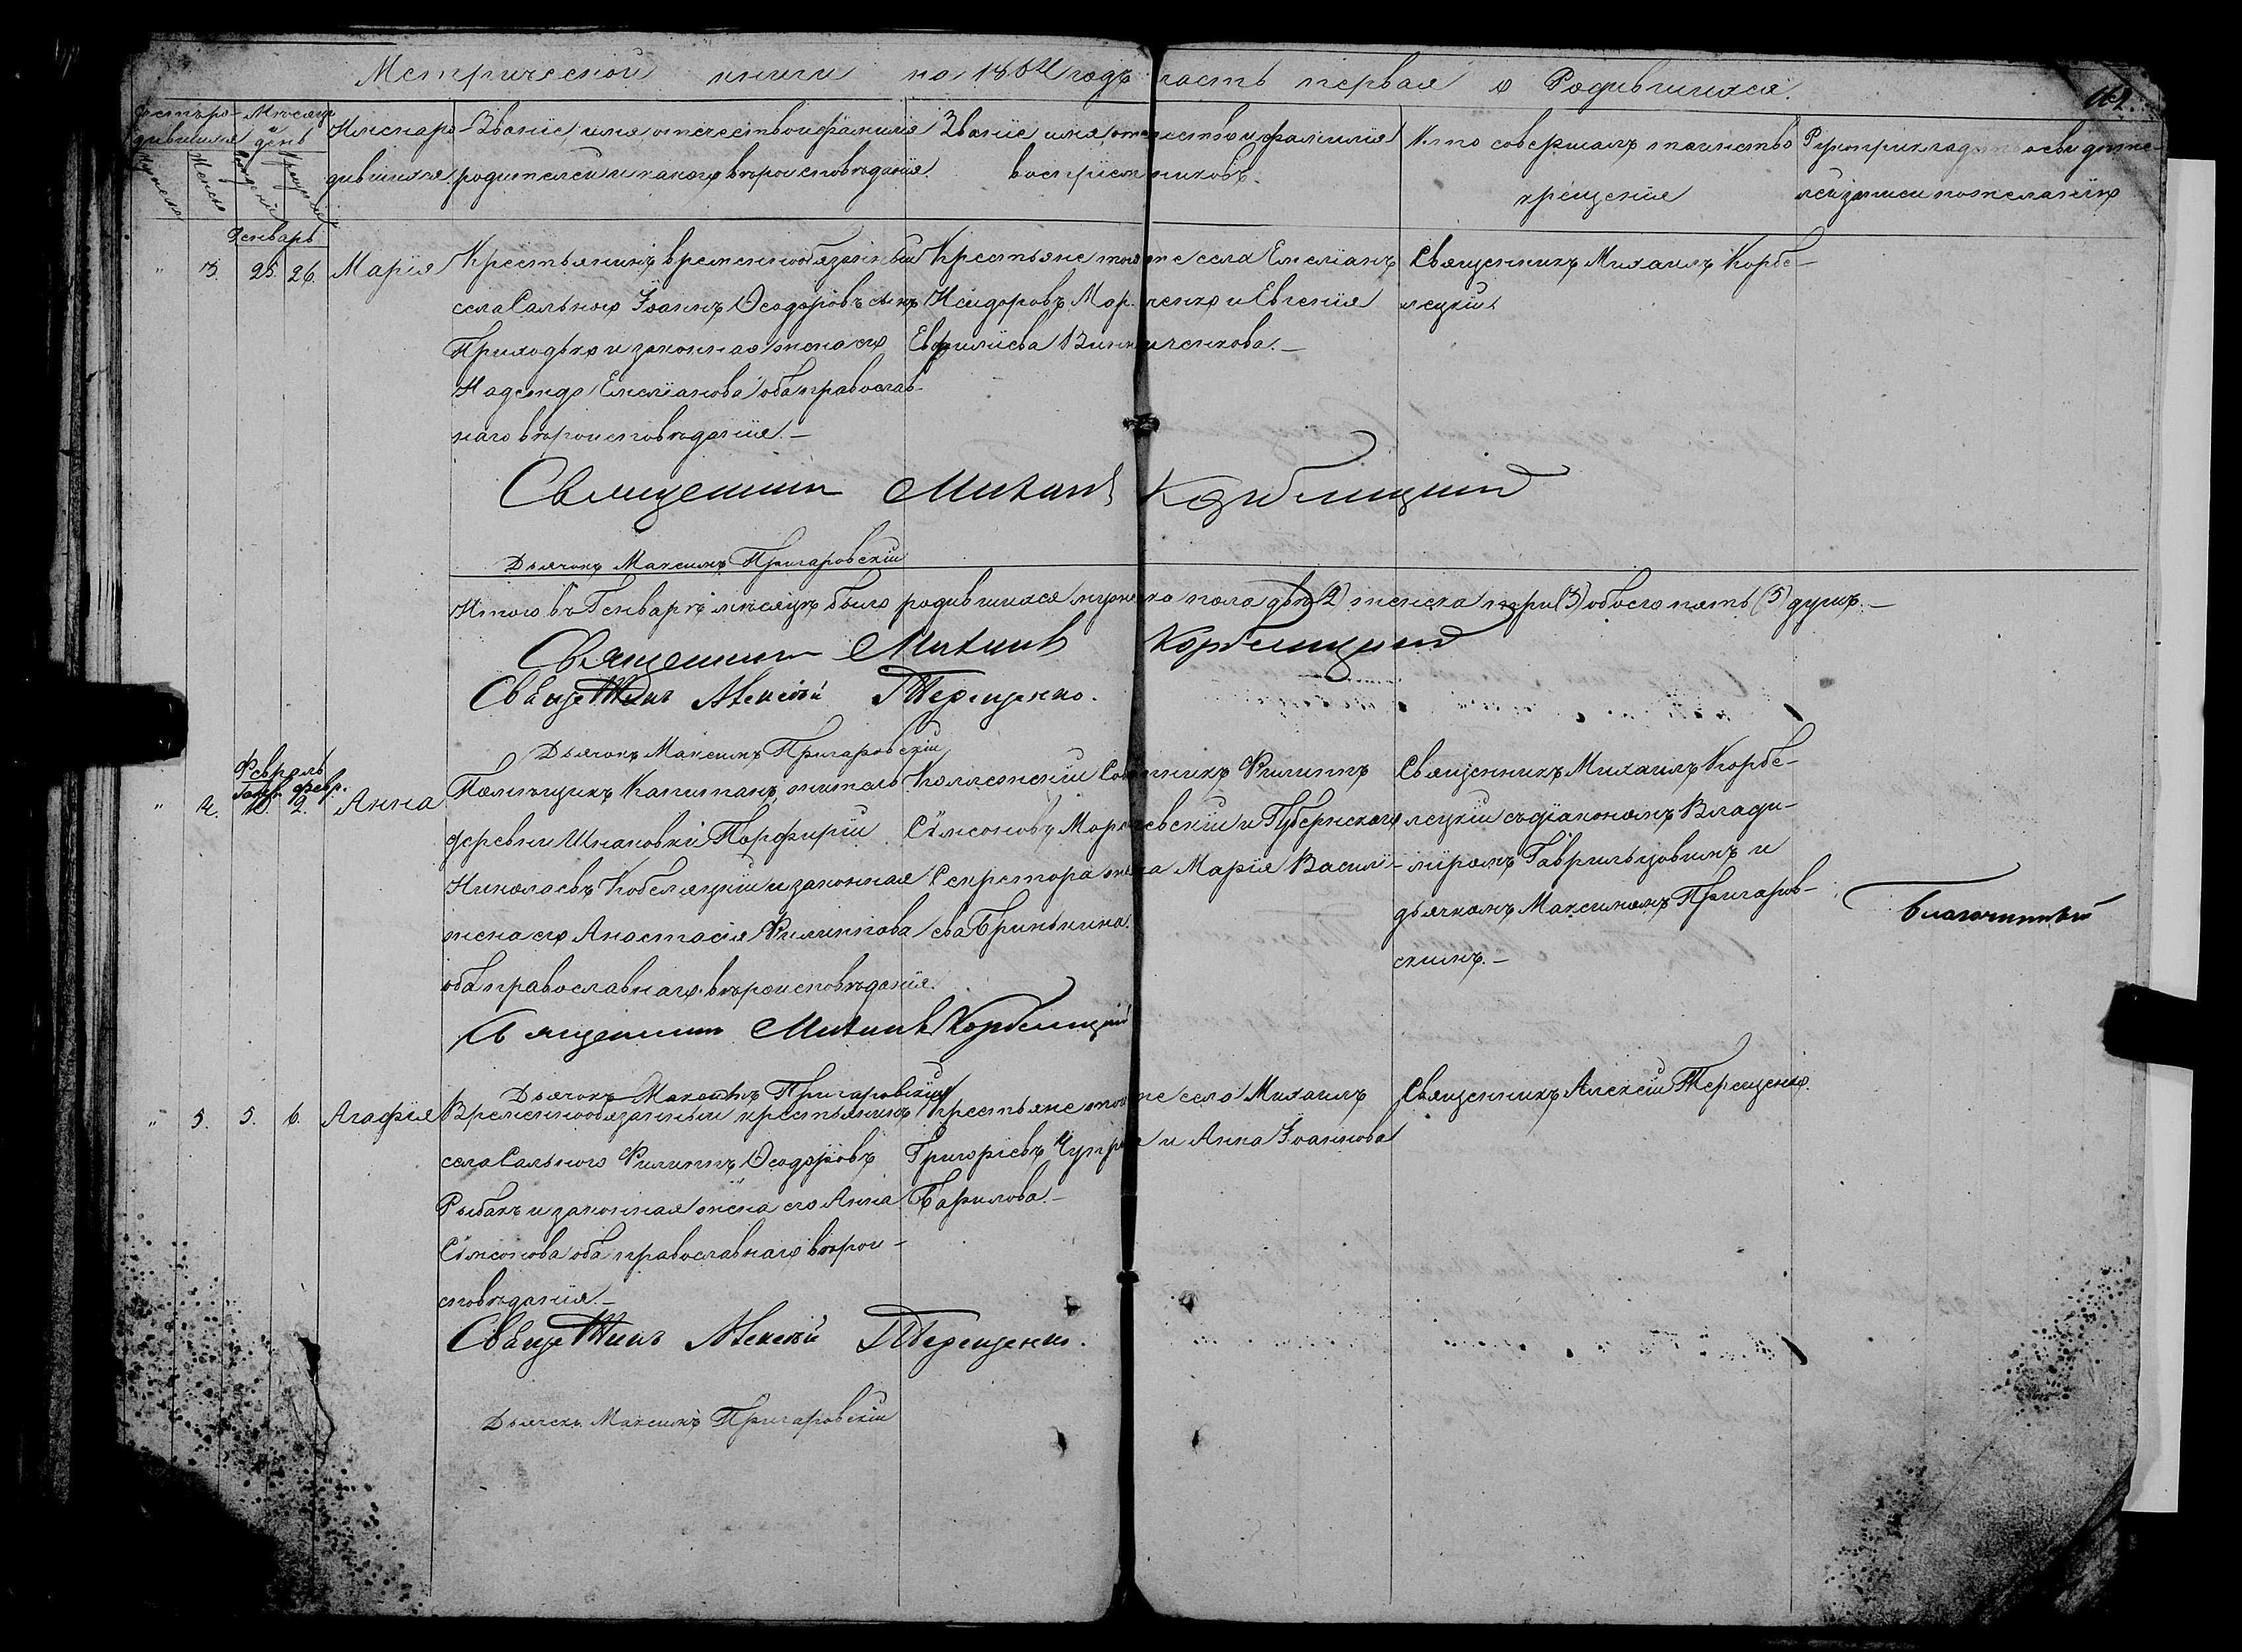 Метрической книги на 1864 годъ часть первая о Родившихся.
Счетъ ро-
дившихся
Мужеска
Женска
Мѣсяцъ
и
день
Рожденія
Крещенія
Имена ро-
дившихся.
Званіе, имя, отчество и фамилія
родителей и какого вѣроисповѣданія.
Званіе, имя, отчество и фамилія
воспріемниковъ.
Кто совершалъ таинство
крещенія
Рукоприкладство свидѣте-
лей записи по желанію
Генварь
" 3. 25. 26. Марія
Крестьянинъ временнообязанный
села Сальнаго Іоаннъ Ѳеодоровъ сынъ
Приходько и законная жена его
Надежда Емеліанова оба православ-
наго вѣроисповѣданія.—
Крестьяне того же села Емеліанъ
Исидоровъ Марченко и Евгенія
Евфиміева Винниченкова.—
Священникъ Михаилъ Корбе-
лецкій
Священникъ Михаилъ Корбелецкій
Дьячокъ Максимъ Пригаровскій
Итого въ Генварѣ мѣсяцѣ было родившихся мужеска пола два (2) женска три (3) обоего пять (5) душъ.—
Священникъ Михаилъ Корбелецкій
Священникъ Алексѣй Терещенко.
Дьячокъ Максимъ Пригаровскій
Февраль
Генв. февр.
" 4. 2. Анна
Помѣщикъ Капитанъ, житель
деревни Шпаковки Порфирій
Николаевъ Кобеляцкій и законная
жена его Анастасія Филиппова
оба православнаго вѣроисповѣданія.
Коллежскій Совѣтникъ Филиппъ
Сѵмеоновъ и Губернскаго
Секретаря жена Марія Василі-
ева
Священникъ Михаилъ Корбе-
лецкій съ діакономъ Влади-
міромъ Гаврильцовымъ и
дьячкомъ Максимомъ Пригаров-
скимъ.—
Благочинный
Священникъ Михаилъ Корбелецкій
Дьячокъ Максимъ Пригаровскій
" 5. 5. 6. Агафія
Временнообязанный крестьянинъ
села Сальнаго Филиппъ Ѳеодоровъ
Рыбакъ и законная жена его Анна
Сѵмеонова оба православнаго вѣрои-
сповѣданія.—
Крестьяне того же села Михаилъ
Григоріевъ и Анна Іоаннова
Бафилова.—
Священникъ Алексѣй Терещенко.
Священникъ Алексѣй Терещенко.
Дьячокъ Максимъ Пригаровскій